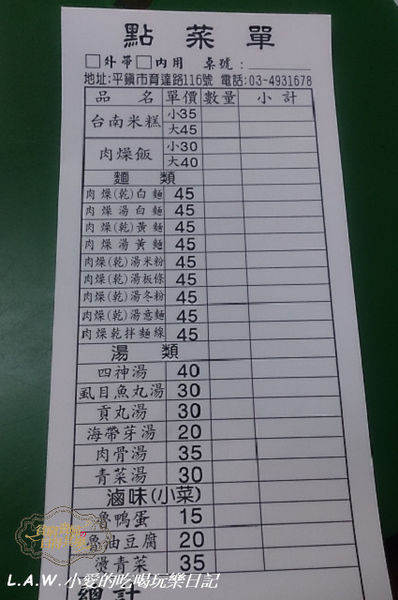 點菜單
□外帶□內用 桌號:
地址:平鎮市育達路116號 電話:03-4931678
品名 單價 數量 小計
台南米糕 小35
大45
肉燥飯 小30
大40
麵類
肉燥(乾)白麵 45
肉燥湯白麵 45
肉燥(乾)黃麵 45
肉燥湯黃麵 45
肉燥(乾)湯米粉 45
肉燥(乾)湯板條 45
肉燥(乾)湯冬粉 45
肉燥(乾)湯意麵 45
肉燥乾拌麵線 45
湯類
四神湯 40
虱目魚丸湯 30
貢丸湯 30
海帶芽湯 20
肉骨湯 35
青菜湯 30
滷味(小菜)
魯鴨蛋 15
魯油豆腐 20
燙青菜 35
總計
L.A.W.小愛的吃喝玩樂日記